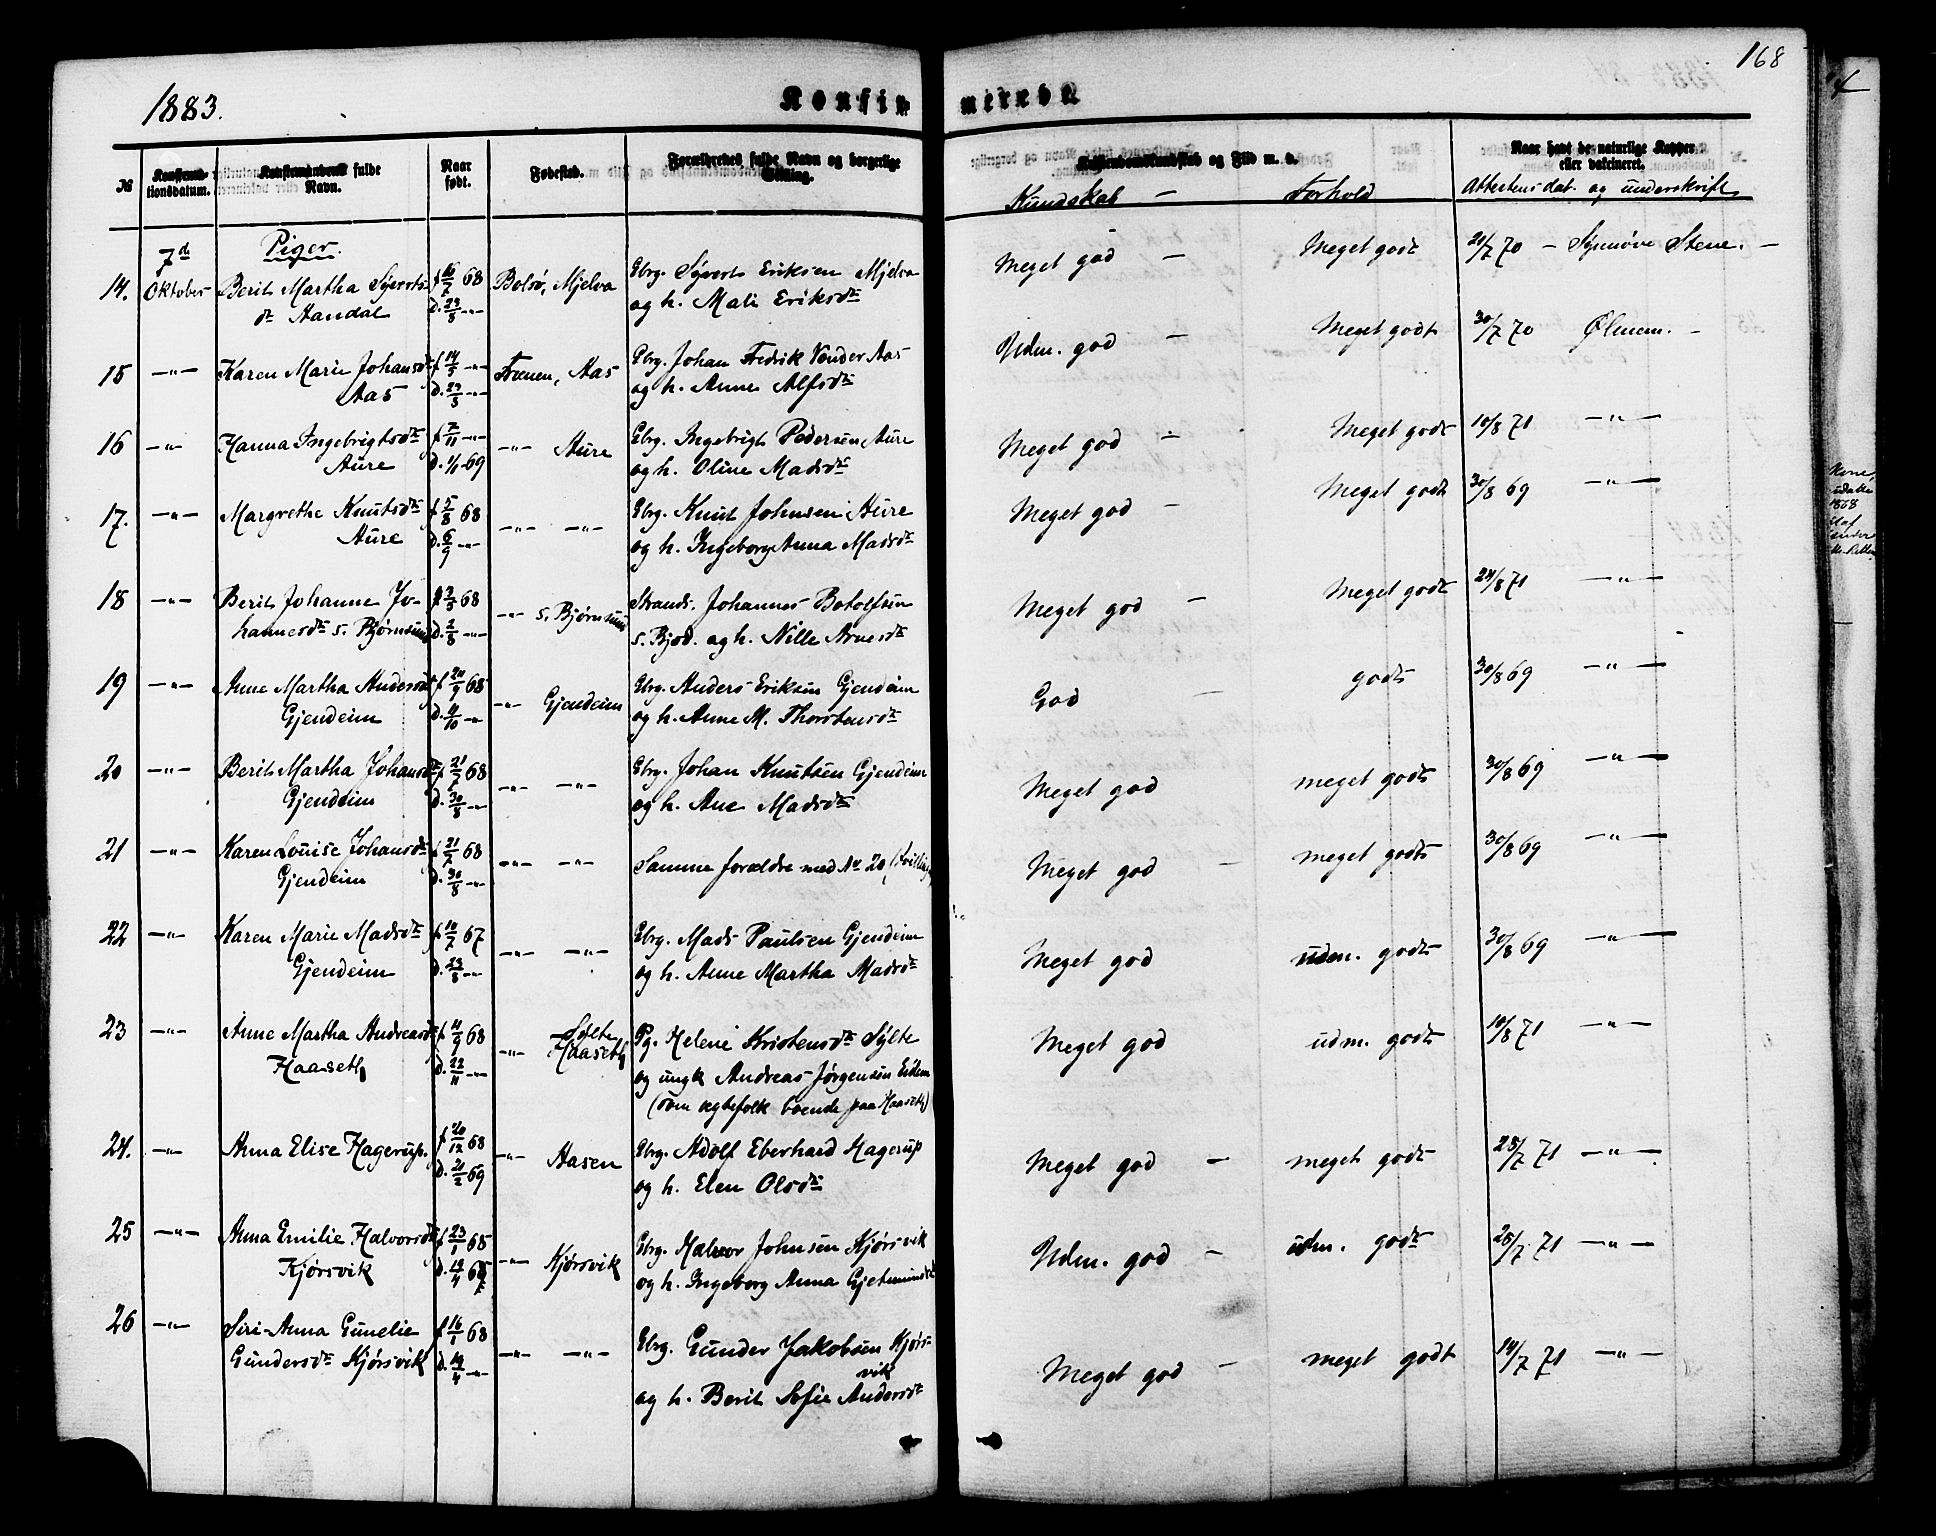 1883.
Konfir merede
168
№ Konfirmationsdatum. Konfirmandens fulde Navn. Naar født. Fødested. Forældrenes fulde Navn og borgerlige Stilling. Kristendomskundskab og Flid m. v. Naar havt de naturlige Kopper, eller vakcineret.
Kundskab — Forhold Attestens dat. og underskrift
7d Piger.
14. Oktober Berit Martha Syverts- f 16/7 68 Bolsø, Mjelva Gbrg. Syvert Eriksen Mjelva Meget god — Meget godt 21/7 70 — Synnøve Stene. —
dt Aandal d. 23/8 -"- og h. Mali Eriksdt
15 -"- Karen Marie Johansdt f 14/3 -"- Frænen, Aas Gbrg. Johan Fredrik Vonder Aas Udm. god — Meget godt 30/7 70 Ølmem. —
Aas d. 29/3 -"- og h. Anne Alfsdt
16 -"- Hanna Ingebrigtsdt f 7/11 -"- -"- Aure Gbrg. Ingebrigt Pedersen Aure Meget god — Meget godt 10/8 71 -"-
Aure d. 1/1 69 og h. Oline Madsdt
17. -"- Margrethe Knutsdt f 5/8 68 -"- -"- Gbrg. Knut Johnsen Aure Meget god — Meget godt 30/8 69 -"-
Aure d. 6/9 -"- og h. Ingeborg Anna Madsdt
18 -"- Berit Johanne Jo- f 3/5 68 -"- s. Bjørnsund Strands. Johannes Botolfsen Meget god — Meget godt 24/8 71 -"-
hannesdt s. Bjørnsund d. 2/8 -"- s. Bjod. og h. Nille Arnesdt
19 -"- Anne Martha Andersdt f 20/9 68 -"- Gjendeim Gbrg. Anders Eriksen Gjendeim God — godt 30/8 69 -"-
Gjendeim d. 4/10 -"- og h. Anne M. Thorstensdt
20 -"- Berit Martha Johansdt f 21/7 68 -"- -"- Gbrg. Johan Knutsen Gjendeim Meget god meget godt 30/8 69 -"-
Gjendeim d. 30/8 -"- og h. Ane Madsdt
21 -"- Karen Louise Johansdt f 21/7 68 -"- -"- Samme forældre med Nr 20 (Tvilling) Meget god — meget godt 30/8 69 -"-
Gjendeim d. 30/8 -"-
22 -"- Karen Marie Madsdt f 10/7 67 -"- -"- Gbrg. Mads Paulsen Gjendeim Meget god udm. godt 30/8 69 -"-
Gjendeim d. 23/8 -"- og h. Anne Martha Madsdt
23 -"- Anne Martha Andreasdt f 11/9 68 -"- Sylte Haaseth Pg. Helene Kristensdt Sylte Meget god udm. godt 10/8 71 -"-
Haaseth d. 22/11 -"- og ungk Andreas Jørgensen Eidem
(som egtefolk boende paa Haaseth)
24. -"- Anna Elise Hagerup. f 20/12 68 -"- Aasen Gbrg. Adolf Eberhard Hagerup Meget god — meget godt 28/7 71 -"-
d. 21/2 69 og h. Elen Olsdt
25 -"- Anna Emilie Halvorsdt f 23/1 68 -"- Kjørsvik Gbrg. Halvor Johnsen Kjørsvik Udm. god — udm. godt 28/7 71 -"-
Kjørsvik d. 13/4 68 og h. Ingeborg Anna Gjetmundsdt
26 -"- Siri Anna Gunelie f 16/1 68 -"- -"- Gbrg. Gunder Jakobsen Kjørs- Meget god — meget godt 14/7 71 -"-
Gundersdt Kjørsvik d. 19/4 -"- vik
og h. Berit Sofie Andersdt